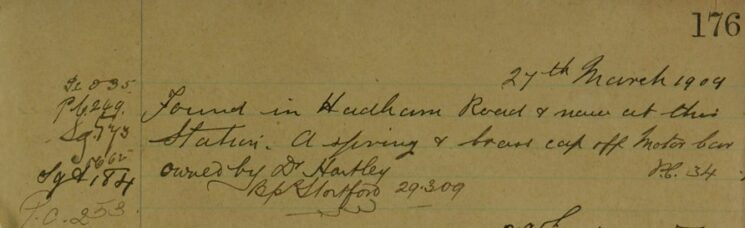 176
27th March 1909
Found in Hadham Road & now at this
Station. A spring & brass cap off Motor Car
owned by Dr Hartley P.C. 34
Bp's Stortford 29.3.09
P.C. 249.
Sgt 573
Sgt 184
P.C. 253.